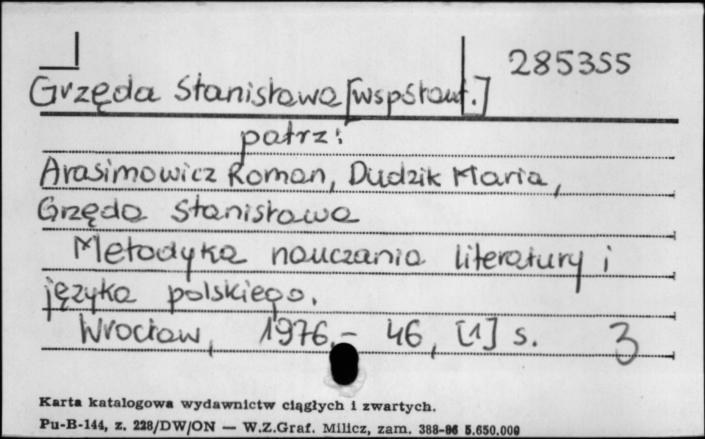 285355
Grzęda Stanisława [wspołaut.]
patrz:
Arasimowicz Roman, Dudzik Maria,
Grzęda Stanisława
Metodyka nauczania literatury i
języka polskiego.
Wrocław, 1976.- 46, [1] s. 3
Karta katalogowa wydawnictw ciągłych i zwartych.
Pu-B-144, z. 228/DW/ON — W.Z.Graf. Milicz, zam. 388-86 5.650.000